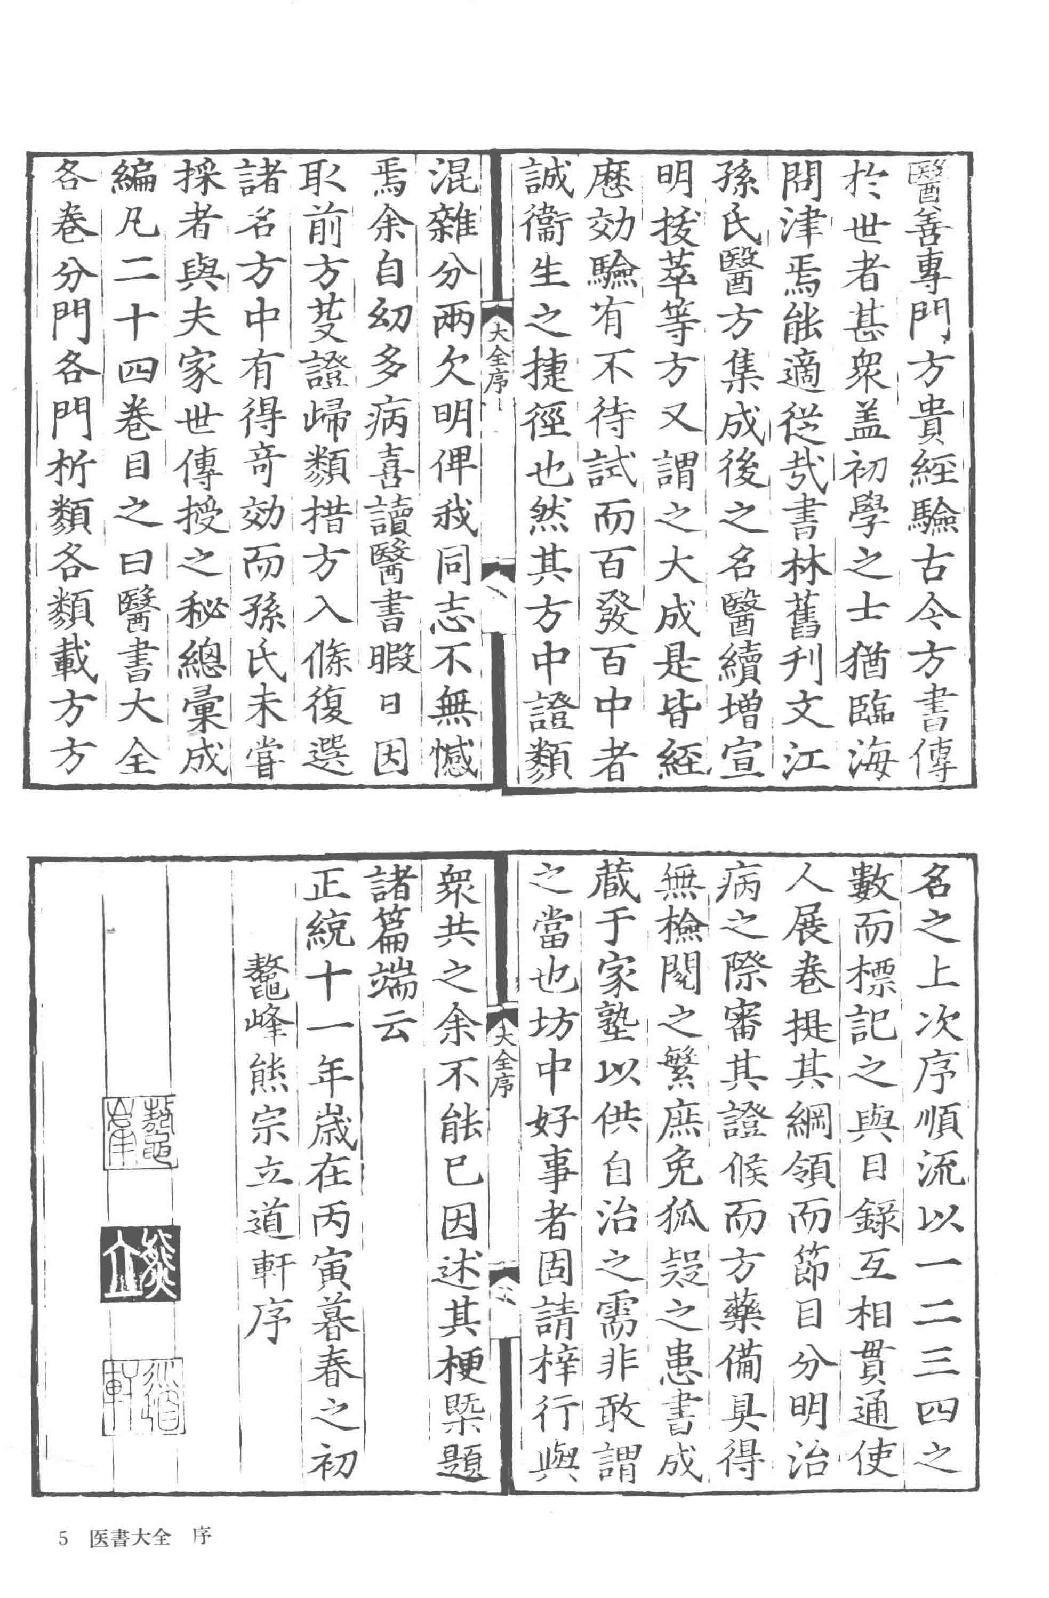 醫善專門方貴經驗古今方書傳
於世者甚衆盖初學之士猶臨海
問津焉能適從㢤書林舊刋文江
孫氏醫方集成後之名醫續增宣
明拔萃等方又謂之大成是皆經
歷効驗有不待試而百發百中者
誠衞生之捷徑也然其方中證類
大全序
混雜分兩欠明俾我同志不無憾
焉余自幼多病喜讀醫書暇日因
取前方芟證歸類措方入條復選
諸名方中有得竒効而孫氏未甞
採者與夫家世傳授之秘總彙成
編凡二十四卷目之曰醫書大全
各卷分門各門析類各類載方方
名之上次序順流以一二三四之
數而標記之與目錄互相貫通使
人展卷提其綱領而節目分明治
病之際審其證候而方藥備具得
無檢閱之繁庶免狐疑之患書成
藏于家塾以供自治之需非敢謂
之當也坊中好事者固請梓行與
大全序
衆共之余不能已因述其梗槩題
諸篇端云
正統十一年歳在丙寅暮春之初
鼇峰熊宗立道軒序
鼇峯
熊立
道軒
5 医書大全 序